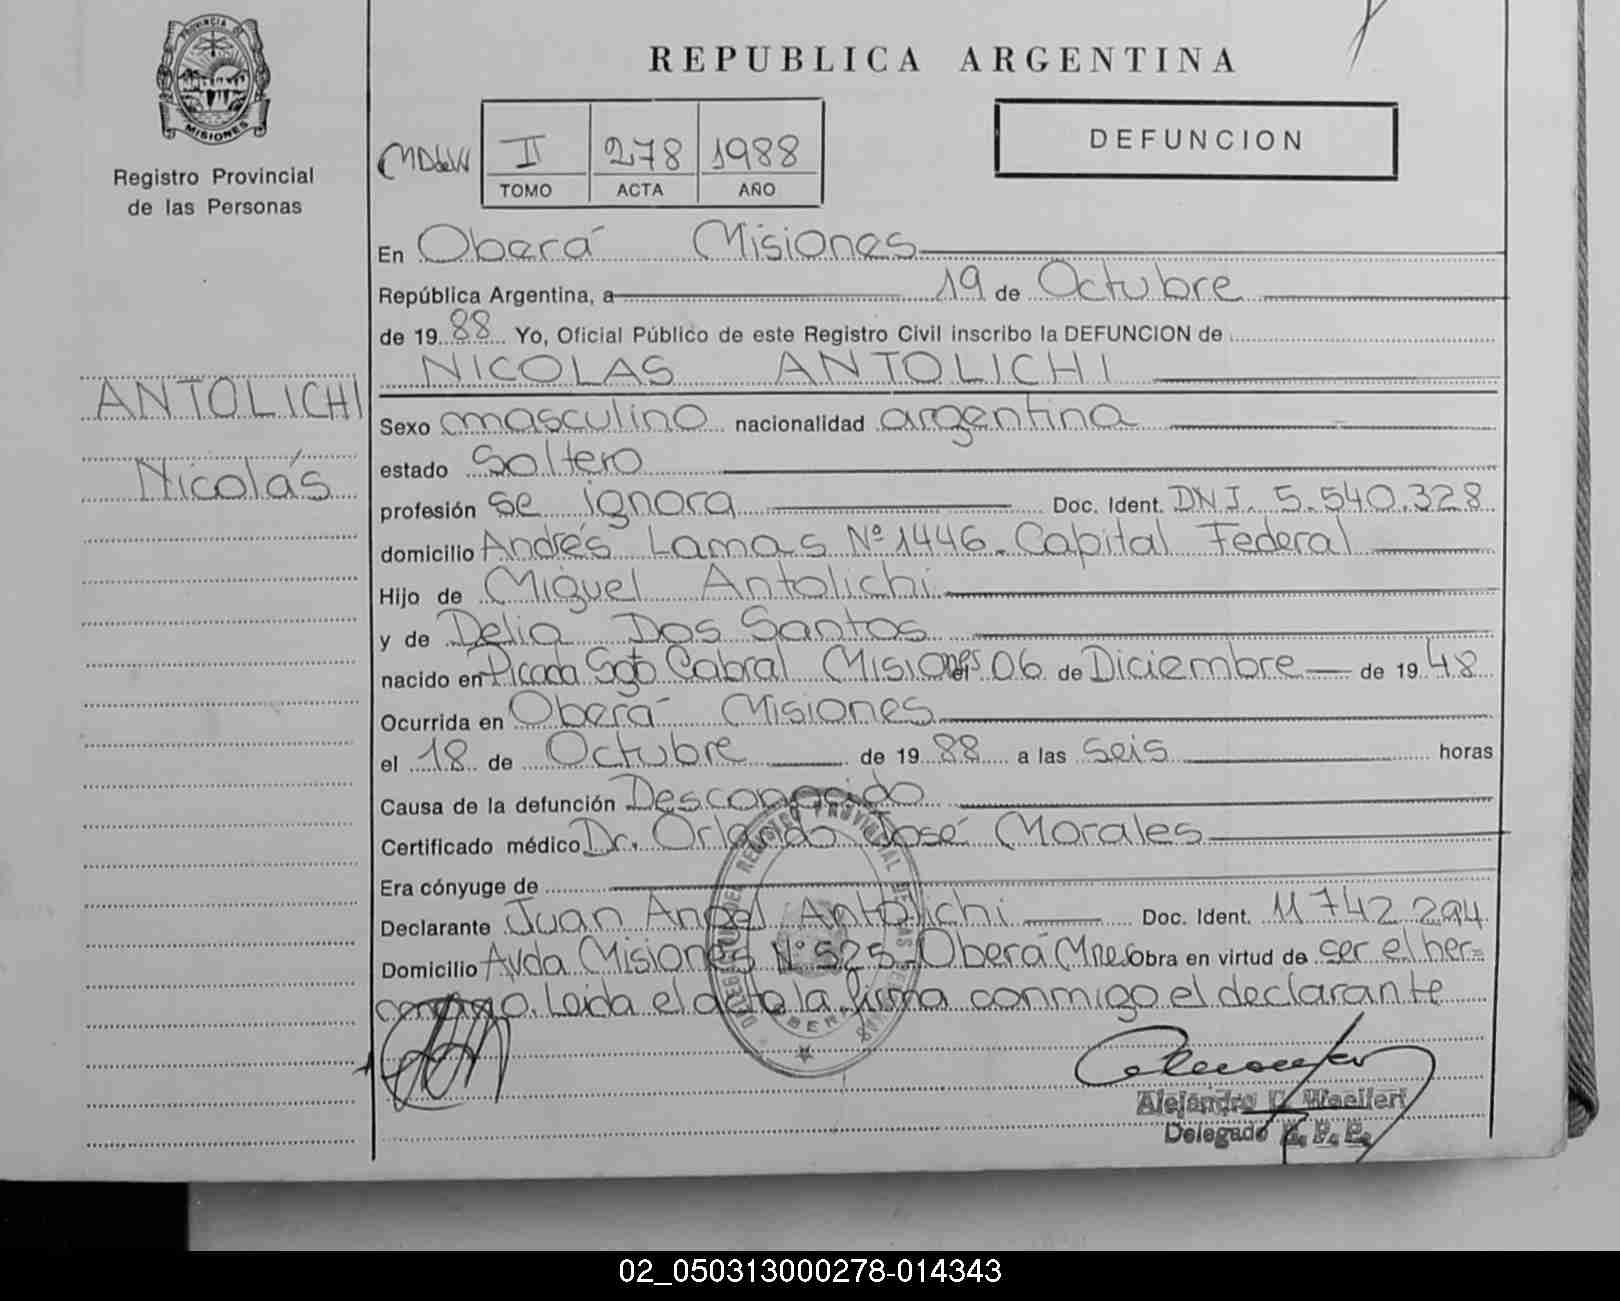 PROVINCIA DE
MISIONES
Registro Provincial
de las Personas
ANTOLICHI
Nicolás
REPUBLICA ARGENTINA
DEFUNCION
II 278 1988
TOMO ACTA AÑO
En Oberá Misiones
República Argentina, a 19 de Octubre
de 19 88 Yo, Oficial Público de este Registro Civil inscribo la DEFUNCION de
NICOLAS ANTOLICHI
Sexo masculino nacionalidad argentina
estado Soltero
profesión se ignora Doc. Ident. DNI. 5.540.328
domicilio Andrés Lamas Nº 1446. Capital Federal
Hijo de Miguel Antolichi
y de Delia Dos Santos
nacido en Picada Sgto Cabral Misiones el 06 de Diciembre de 19 48
Ocurrida en Oberá Misiones
el 18 de Octubre de 19 88 a las seis horas
Causa de la defunción Desconocido
Certificado médico Dr. Orlando José Morales
Era cónyuge de
Declarante Juan Angel Antolichi Doc. Ident. 11 742 294
Domicilio Avda Misiones Nº 525 - Oberá Mnes Obra en virtud de ser el her=
mano. Leida el acta la firma conmigo el declarante
Alejandro
Delegado R. P. P.
02_050313000278-014343